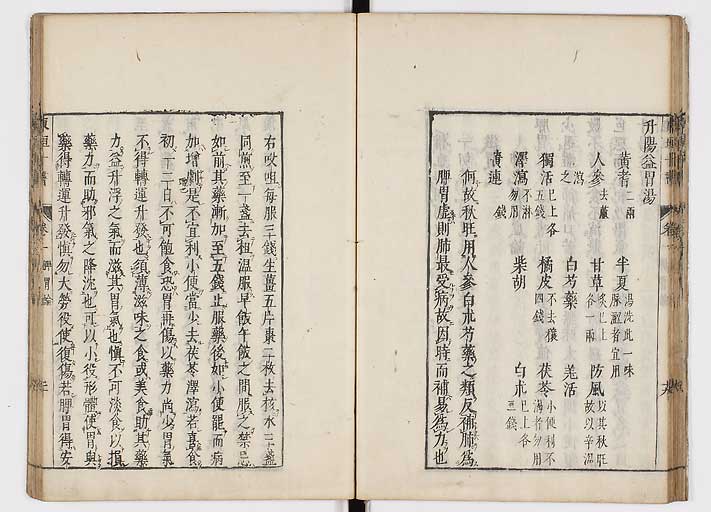 升陽益胃湯
黄耆二兩 半夏湯洗此一味脉澀者宜用
人參去蘆 甘草炙已上各一兩 防風以其秋旺故以辛温
瀉之 白芍藥 羌活
獨活已上各五錢 橘皮不去穰四錢 茯苓小便利不渴者勿用
澤瀉不淋勿用 柴胡 白朮已上各三錢
黄連
何故秋旺用人參白朮芍藥之類反補肺爲
脾胃虚則肺最受病故因時而補易爲力也
右㕮咀每服三錢生薑五片棗二枚去核水三盞
同煎至一盞去柤温服早飯午飯之間服之禁忌
如前其藥漸加至五錢止服藥後如小便罷而病
加增劇是不宜利小便當少去茯苓澤瀉若喜食
初一二日不可飽食恐胃再傷以藥力尚少胃氣
不得轉運升發也須薄滋味之食或美食助其藥
力益升浮之氣而滋其胃氣也慎不可淡食以損
藥力而助邪氣之降沈也可以小役形體使胃與
藥得轉運升發慎勿大勞役使復傷若脾胃得安